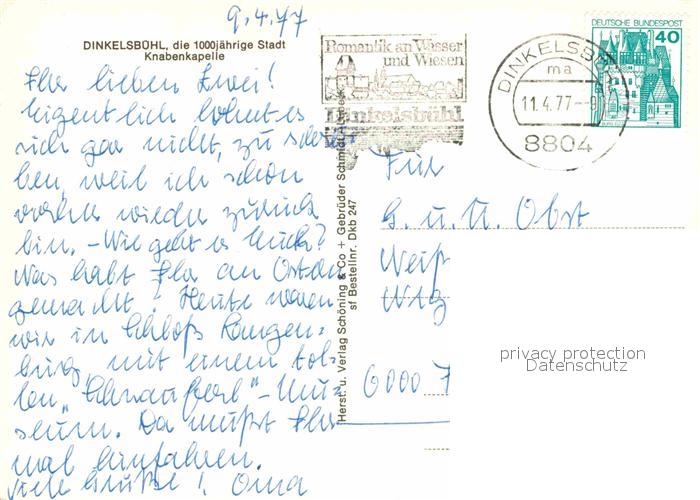 9.4.77
DINKELSBÜHL, die 1000jährige Stadt
Knabenkapelle
Ihr lieben Zwei!
Eigentlich lohnt es
sich gar nicht, zu schrei-
ben, weil ich schon
vorher wieder zurück
bin. - Wie geht es Euch?
Was habt Ihr an Ostern
gemacht? Heute waren
wir in Schloß Langen=
burg, mit einem tol=
len "Schnauferl"-Mu=
seum. Da müßt Ihr
mal hinfahren.
Viele Grüße! Oma
Herst. u. Verlag Schöning & Co + Gebrüder Schmidt, Lübeck
sf Bestellnr. Dkb 247
Romantik an Wasser
und Wiesen
Dinkelsbühl
DINKELSB
ma
11.4.77-9
8804
DEUTSCHE BUNDESPOST
40
Für
G. u. U. Obst
Weiß
Wtg
6000 7
privacy protection
Datenschutz